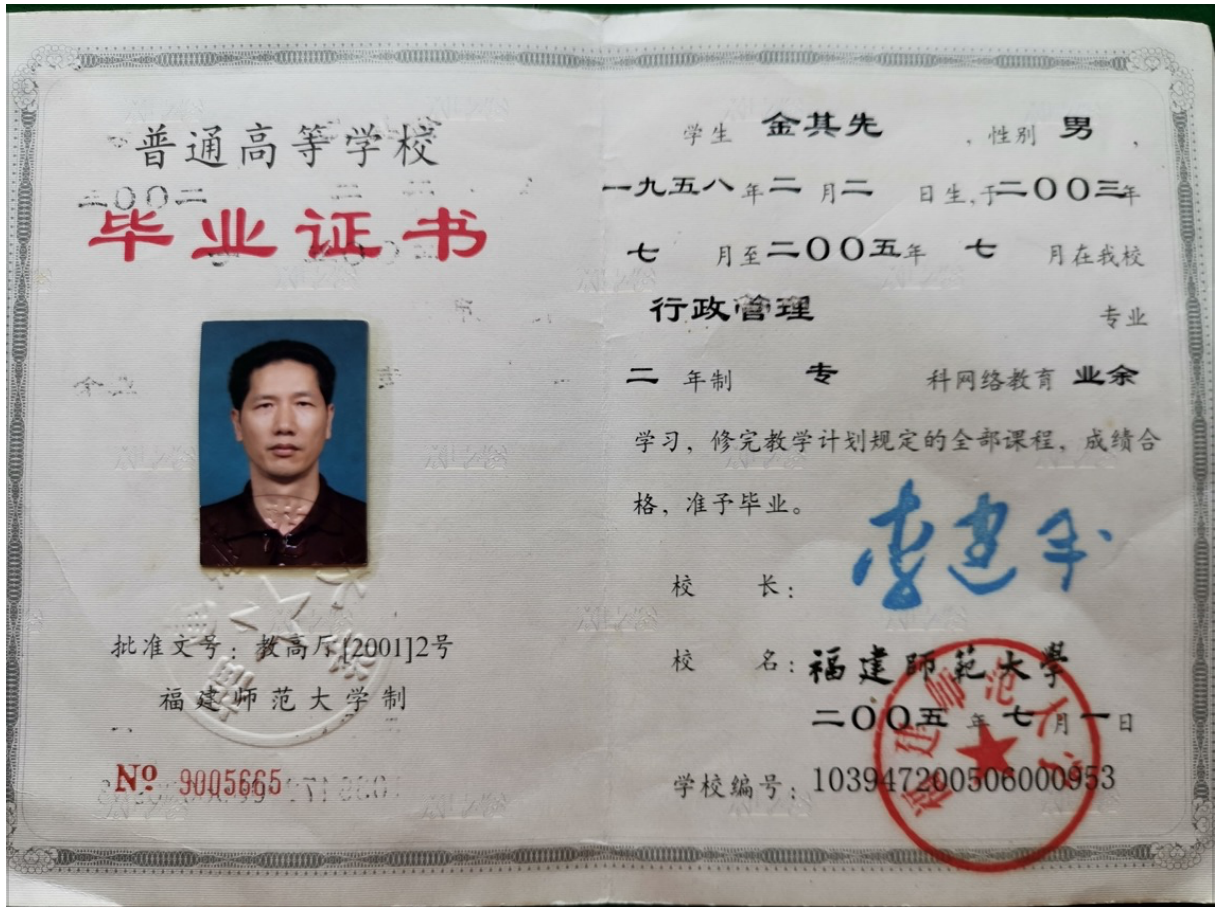 普通高等学校
毕业证书
批准文号：教高厅[2001]2号
福建师范大学制
№ 9005665
学生 金其先 ，性别 男 ，
一九五八年二月二日生，于二〇〇三年
七月至二〇〇五年七月在我校
行政管理 专业
二年制 专 科网络教育 业余
学习，修完教学计划规定的全部课程，成绩合
格，准予毕业。
校 长：
校 名：福建师范大学
二〇〇五年七月一日
学校编号：103947200506000953
福建师范大学